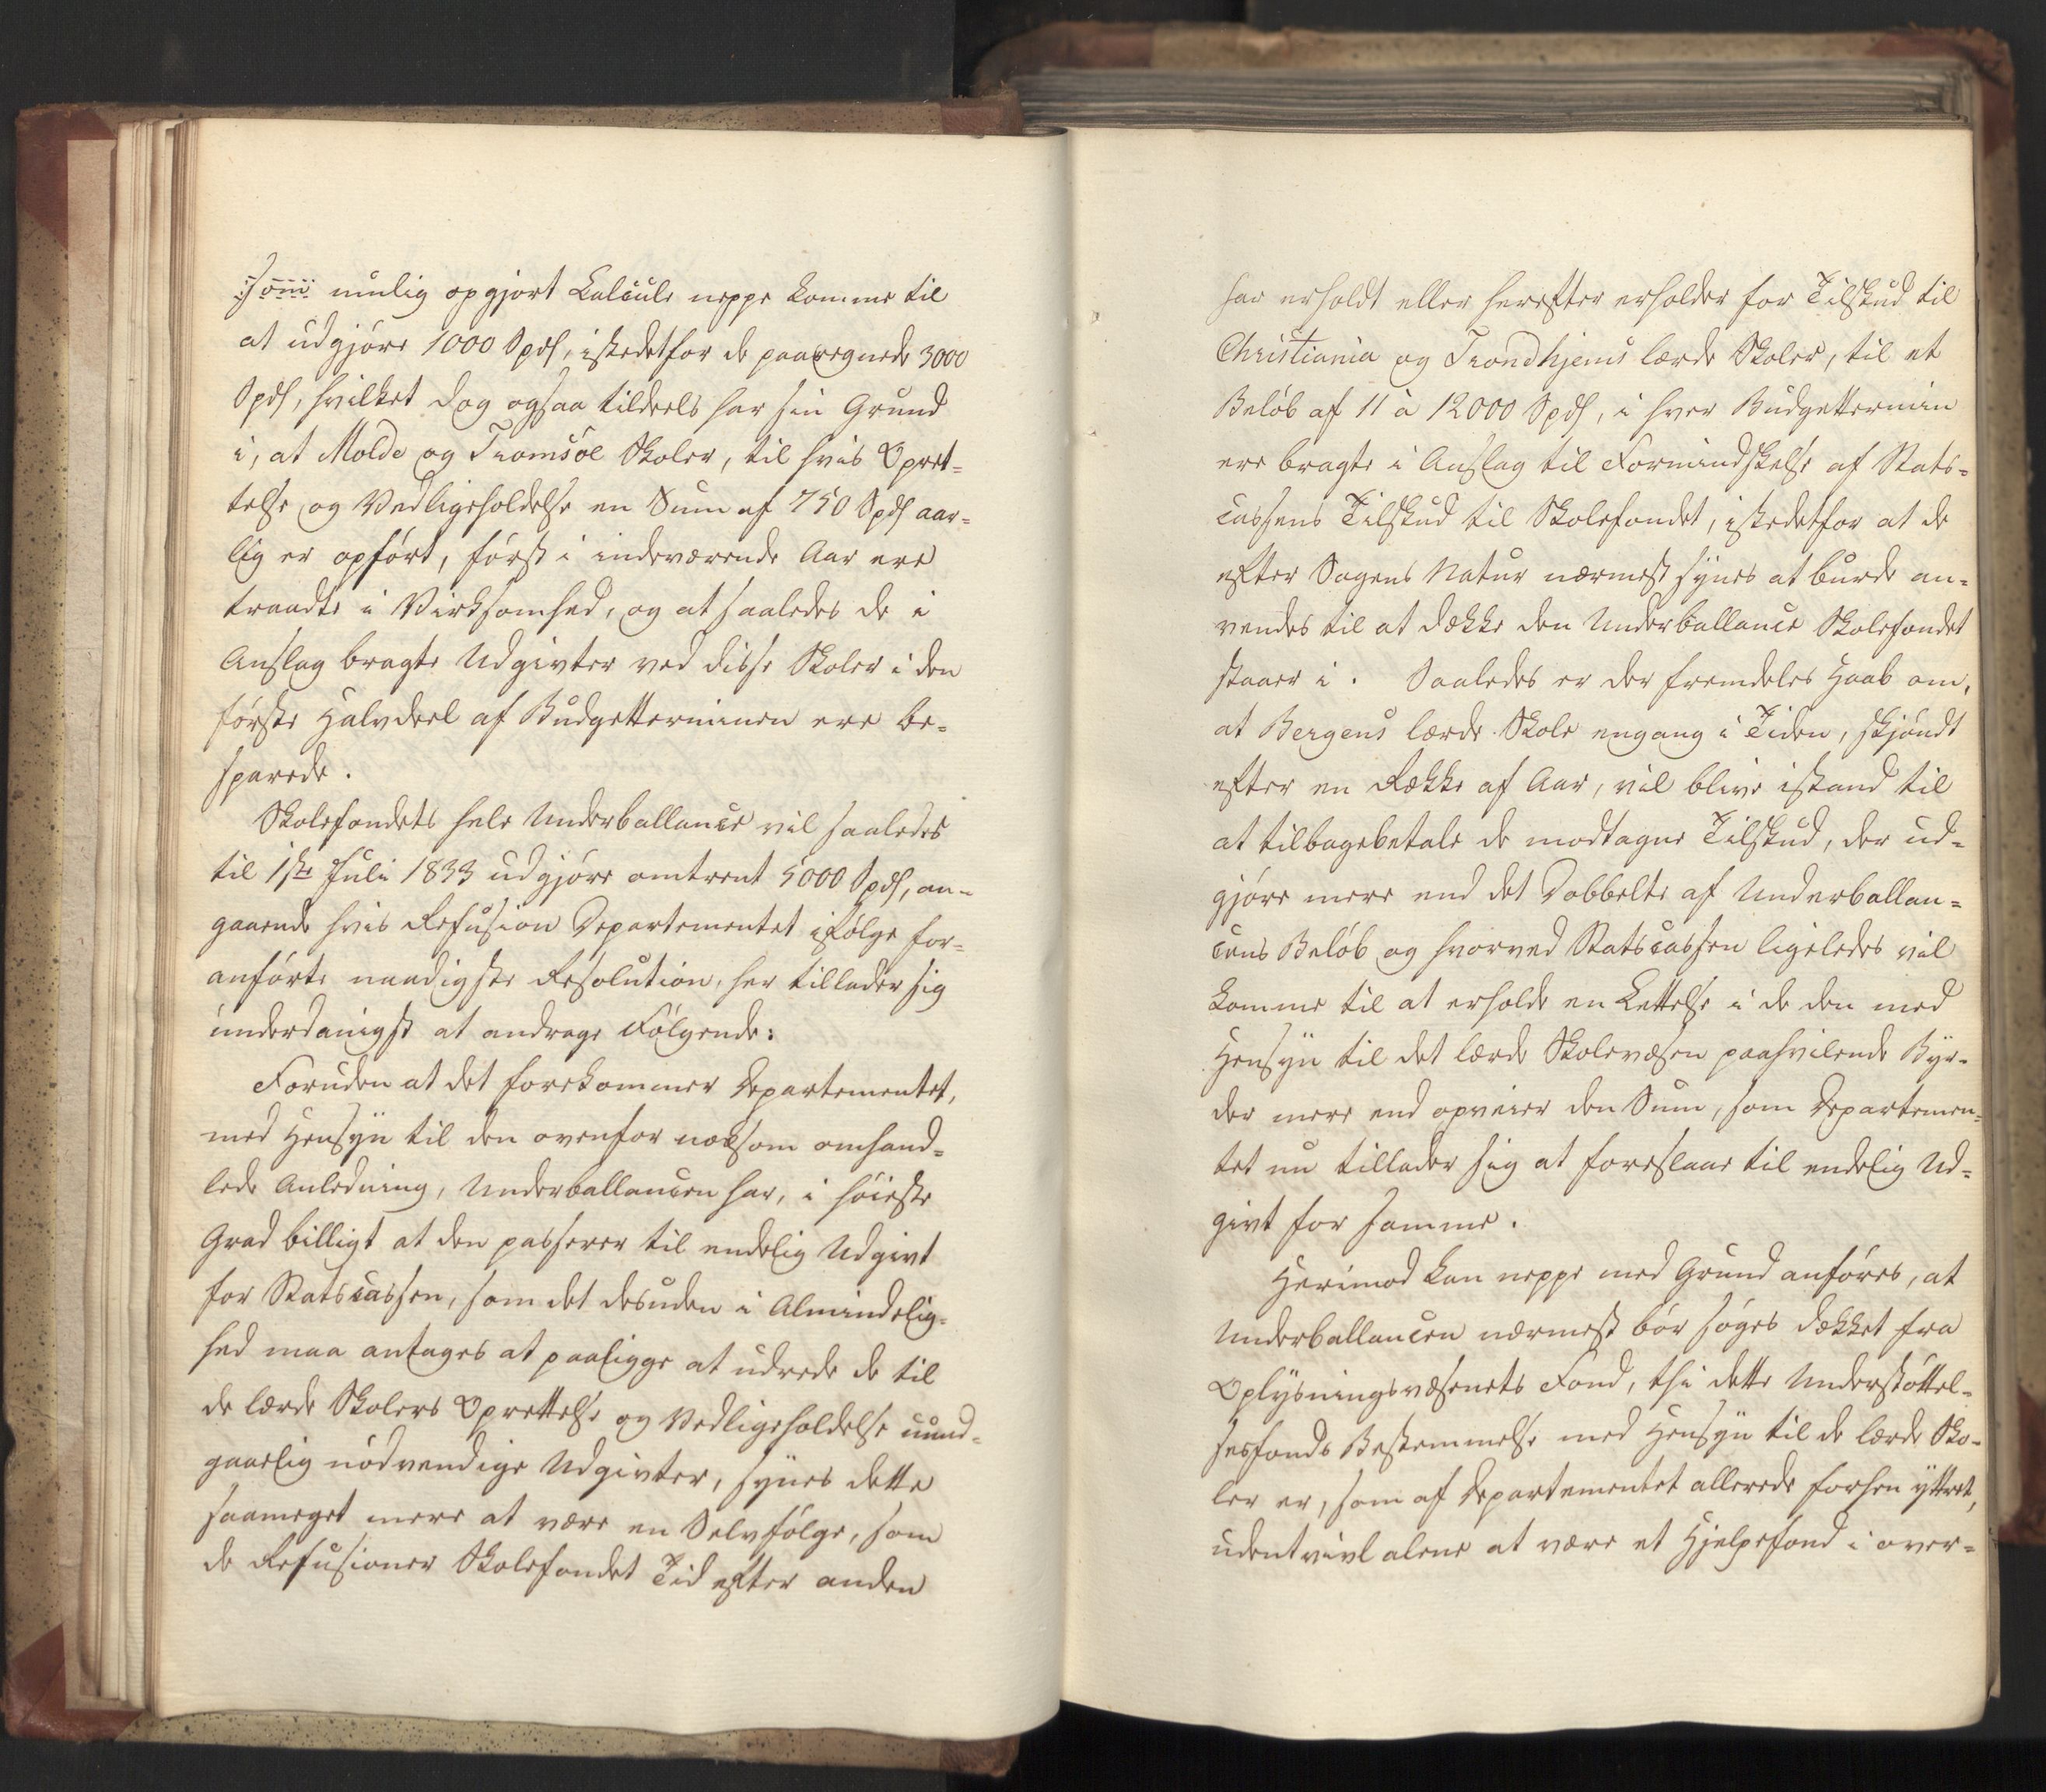 som mulig opgjort Calcule neppe komme til
at udgjøre 1000 Spd, istedetfor de paaregnede 3000
Spd, hvilket dog ogsaa tildeels har sin Grund
i, at Molde og Tromsøe Skoler, til hvis Opret-
telse og Vedligeholdelse en Sum af 750 Spd aar-
lig er opført, først i indeværende Aar ere
traadte i Virksomhed, og at saaledes de i
Anslag bragte Udgivter ved disse Skoler i den
første Halvdeel af Budgetterminen ere be-
sparede.
Skolefondets hele Underballance vil saaledes
til 1ste Juli 1833 udgjøre omtrent 5000 Spd, an-
gaaende hvis Refusion Departementet ifølge for-
anførte naadigste Resolution, her tillader sig
underdanigst at andrage Følgende:
Foruden at det forekommer Departementet,
med Hensyn til den ovenfor noksom omhand-
lede Anledning, Underballancen har, i høieste
Grad billigt at den passerer til endelig Udgivt
for Statscassen, som det desuden i Almindelig-
hed maa antages at paaligge at udrede de til
de lærde Skolers Oprettelse og Vedligeholdelse uund-
gaaelig nødvendige Udgivter, synes dette
saameget mere at være en Selvfølge, som
de Refusioner Skolefondet Tid efter anden
har erholdt eller herefter erholder for Tilskud til
Christiania og Trondhjems lærde Skoler, til et
Beløb af 11 à 12000 Spd, i hver Budgettermin
ere bragte i Anslag til Formindskelse af Stats-
cassens Tilskud til Skolefondet, istedetfor at de
efter Sagens Natur nærmest synes at burde an-
vendes til at dække den Underballance Skolefondet
staaer i. Saaledes er der fremdeles Haab om,
at Bergens lærde Skole engang i Tiden, skjøndt
efter en Række af Aar, vil blive istand til
at tilbagebetale de modtagne Tilskud, der ud-
gjøre mere end det Dobbelte af Underballan-
cens Beløb og hvorved Statscassen ligeledes vil
komme til at erholde en Lettelse i de den med
Hensyn til det lærde Skolevæsen paahvilende Byr-
der mere end opveier den Sum, som Departemen-
tet nu tillader sig at foreslaae til endelig Ud-
givt for samme.
Herimod kan neppe med Grund anføres, at
Underballancen nærmest bør søges dækket fra
Oplysningsvæsenets Fond, thi dette Understøttel-
sesfonds Bestemmelse med Hensyn til de lærde Sko-
ler er, som af Departementet allerede forhen yttret,
udentvivl alene at være et Hjelpefond i over-